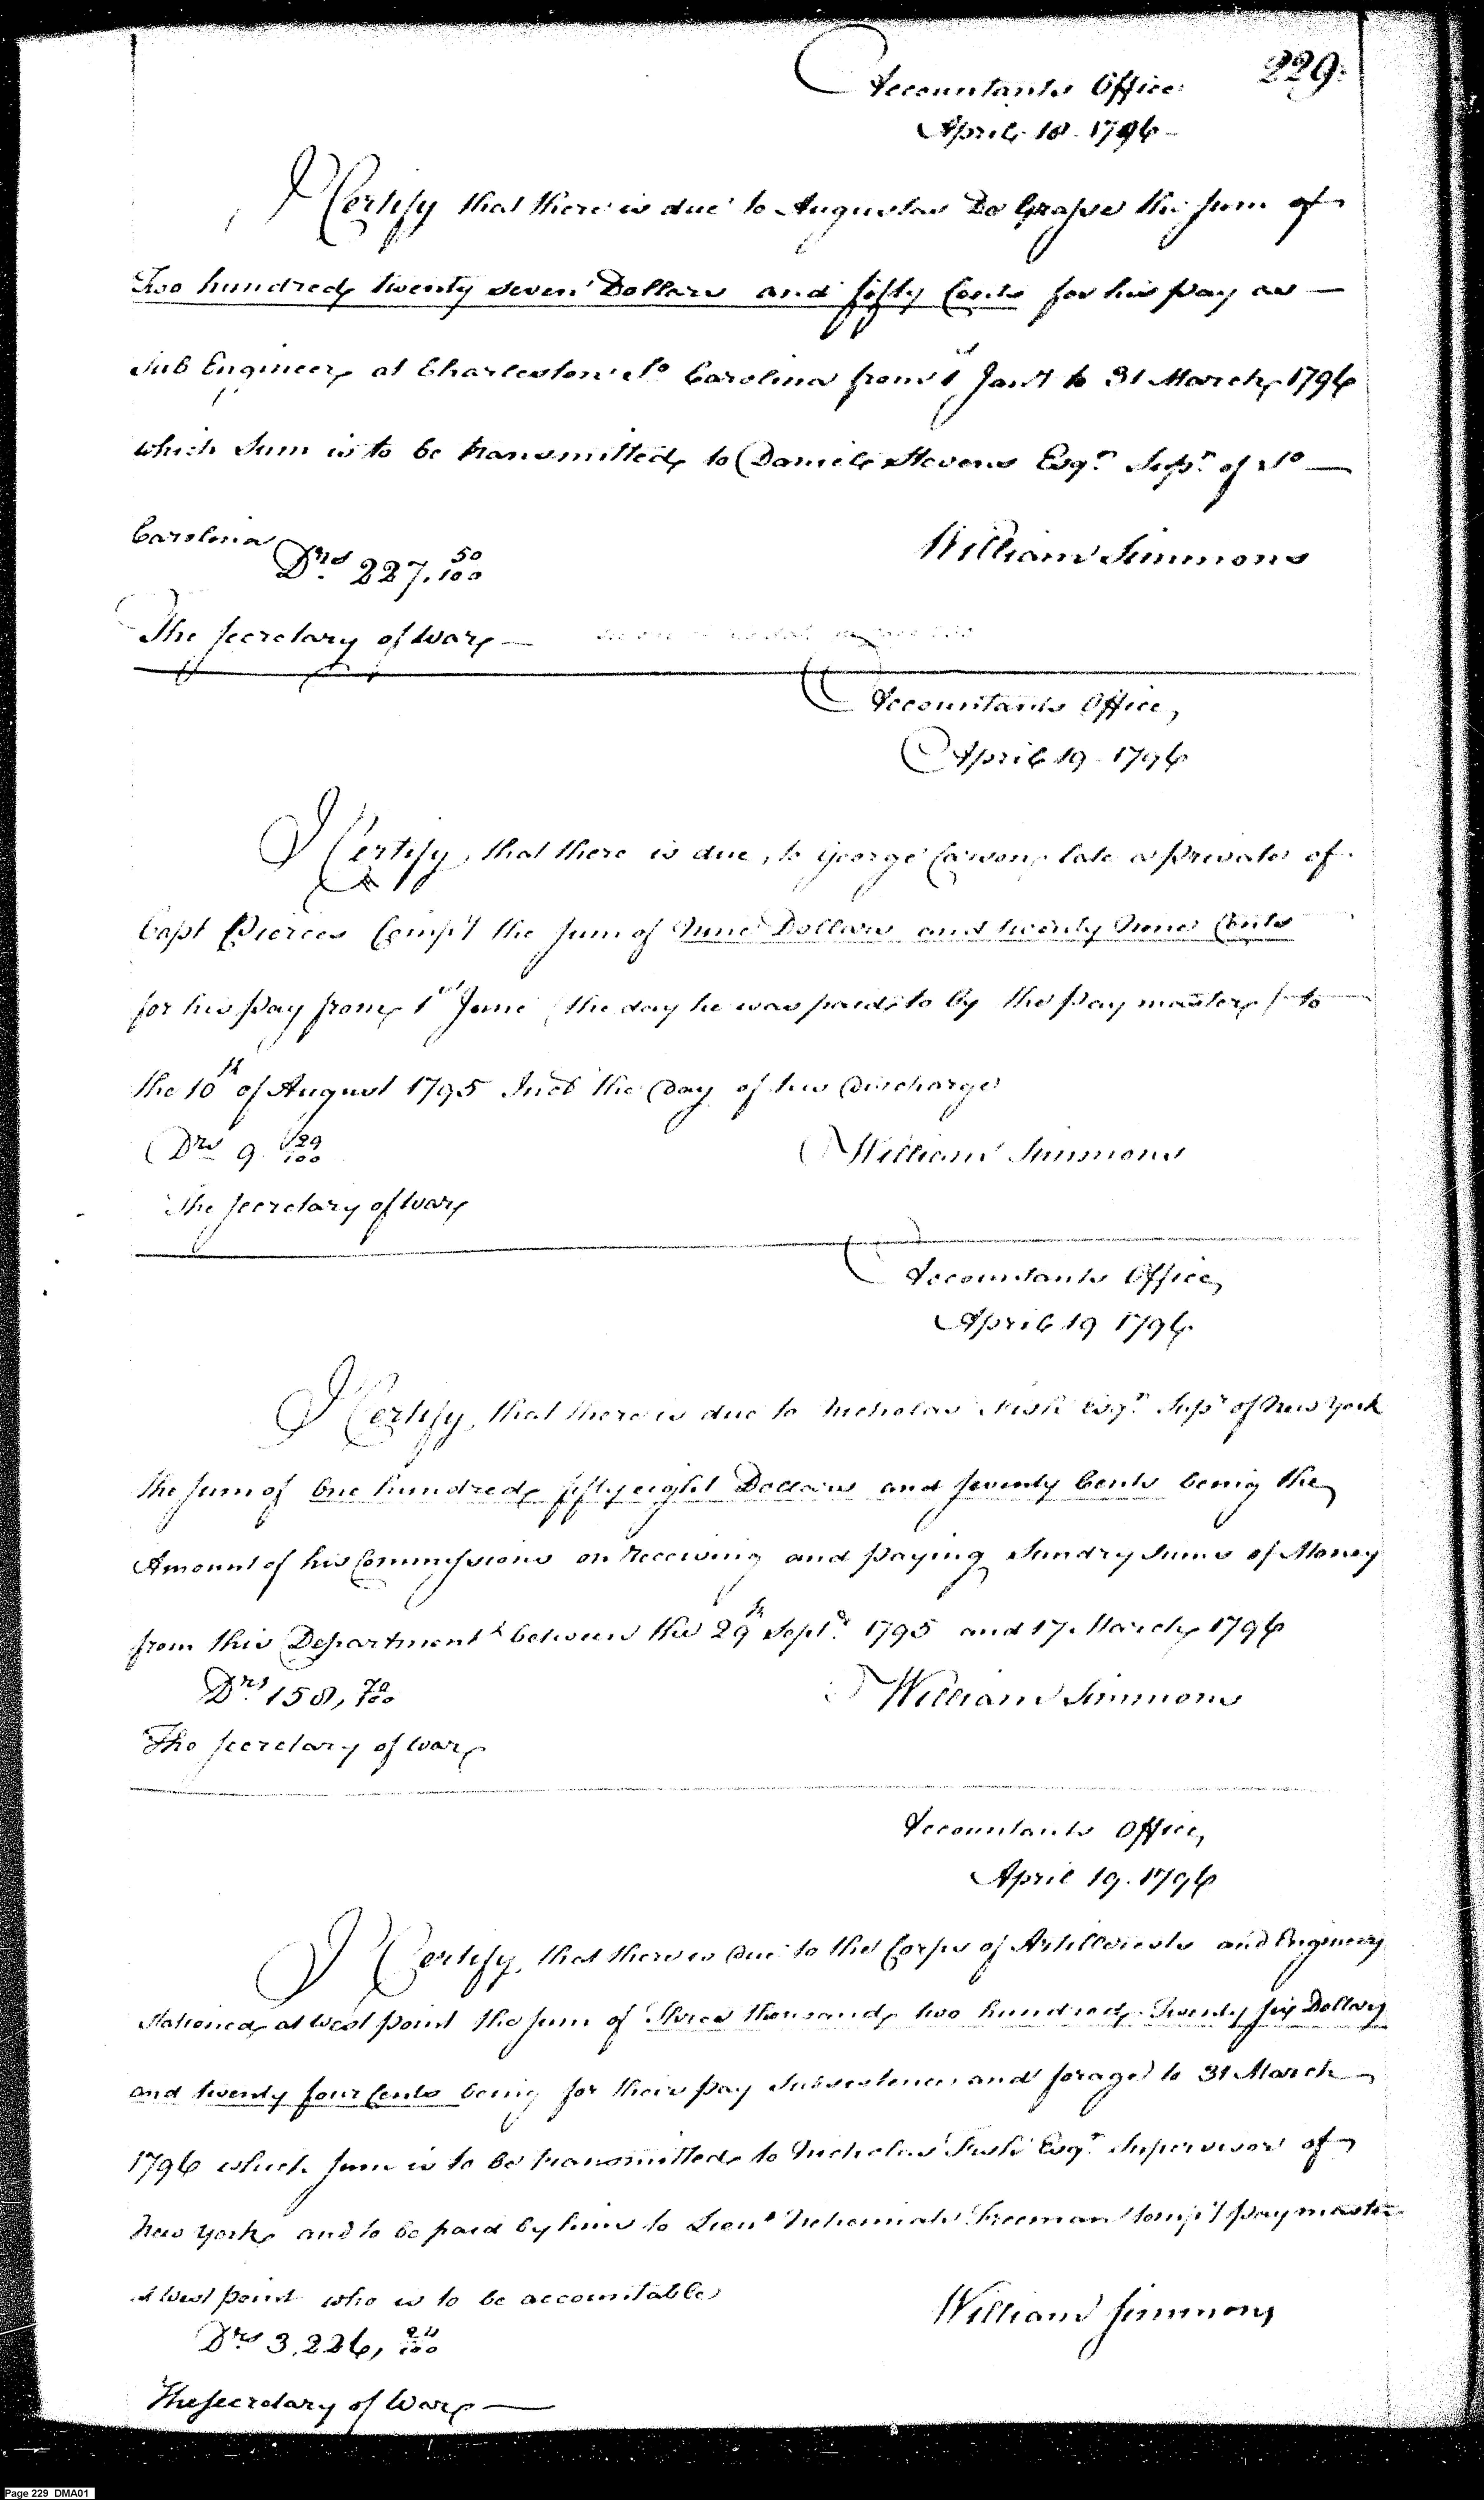 229.
Accountants Office
April 18. 1796
I Certify that there is due to Augustus De Grasse the sum of
Two hundred twenty seven Dollars and fifty Cents for his pay as
Sub Engineer at Charleston So Carolina from 1st Jany to 31 March 1796
which Sum is to be transmitted to Daniel Stevens Esqr Supr of So
Carolina
Drs 227. 50/100
William Simmons
The Secretary of War
Accountants Office,
April 19. 1796
I Certify, that there is due, to George Carson, late a private of
Capt Pierces Compy the sum of Nine Dollars and twenty Nine Cents
for his pay from 1st June (the day he was paid to by the pay master) to
the 10th of August 1795 Incl the Day of his Discharge
Drs 9 29/100
William Simmons
The Secretary of War
Accountants Office,
April 19 1796
I Certify, that there is due to Nicholas Fish Esqr Supr of New York
the sum of One hundred fifty eight Dollars and Seventy Cents being the
Amount of his Commissions on receiving and paying Sundry Sums of Money
from this Department between the 29th Septr 1795 and 17 March 1796
Drs 158, 70/100
William Simmons
The Secretary of War
Accountants Office,
April 19. 1796
I Certify, that there is Due to the Corps of Artillerists and Engineers
stationed at West point the sum of Three thousand two hundred Twenty six Dollars
and twenty four Cents being for their pay Subsistence and forage to 31 March
1796 which sum is to be transmitted to Nicholas Fish Esqr Supervisor of
New York and to be paid by him to Lieut Nehemiah Freeman tempy paymaster
at West point who is to be accountable
Drs 3,226, 24/100
William Simmons
The Secretary of War
Page 229 DMA01